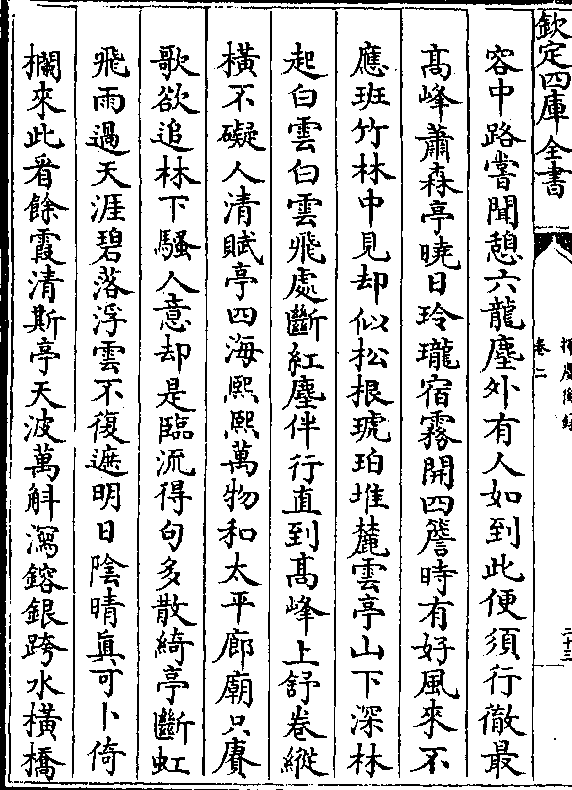 欽定四庫全書
卷二
二十三
容中路嘗聞憩六龍塵外有人如到此便須行徹最
髙峰蕭森亭曉日玲瓏宿霧開四簷時有好風來不
應班竹林中見却似松根琥珀堆麓雲亭山下深林
起白雲白雲飛處斷紅塵伴行直到髙峰上舒卷縱
橫不礙人清賦亭四海熈熈萬物和太平廊廟只賡
歌欲追林下騷人意却是臨流得句多散綺亭斷虹
飛雨過天涯碧落浮雲不復遮明日陰晴真可卜倚
欄來此看餘霞清斯亭天波萬斛瀉鎔銀跨水橫橋